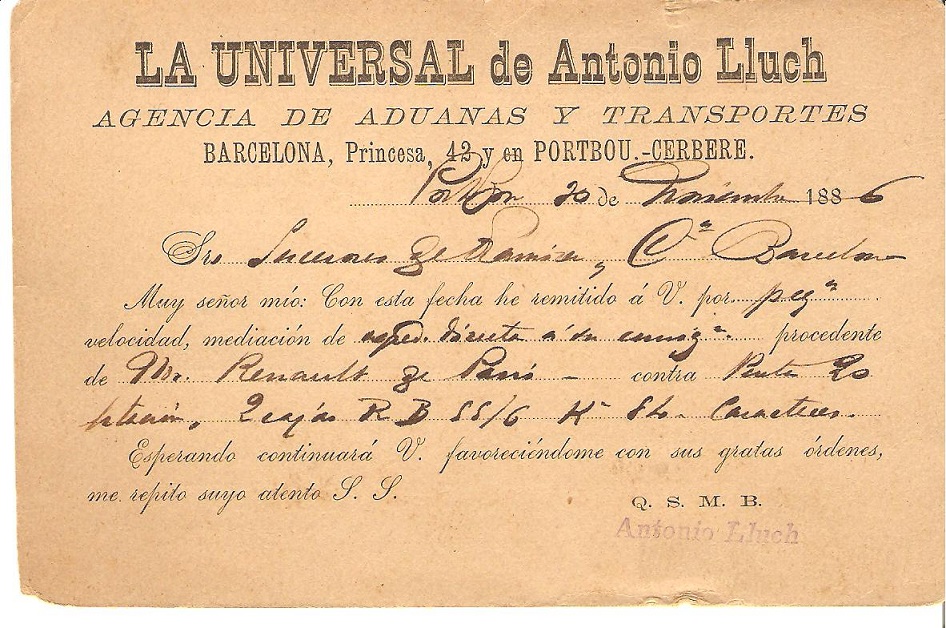 LA UNIVERSAL de Antonio Lluch
AGENCIA DE ADUANAS Y TRANSPORTES
BARCELONA, Princesa, 42 y en PORTBOU.-CERBERE.
PortBou 20 de Noviembre 1886
Sres Sucesores de Ramirez y Cª Barcelona
Muy señor mío: Con esta fecha he remitido á V. por peqª
velocidad, mediación de exped. directa á su consigª. procedente
de Mr. Renault de Paris - contra
2 cajas R B 55/6 Kº Caracteres.
Esperando continuará V. favoreciéndome con sus gratas órdenes,
me repito suyo atento S. S.
Q. S. M. B.
Antonio Lluch